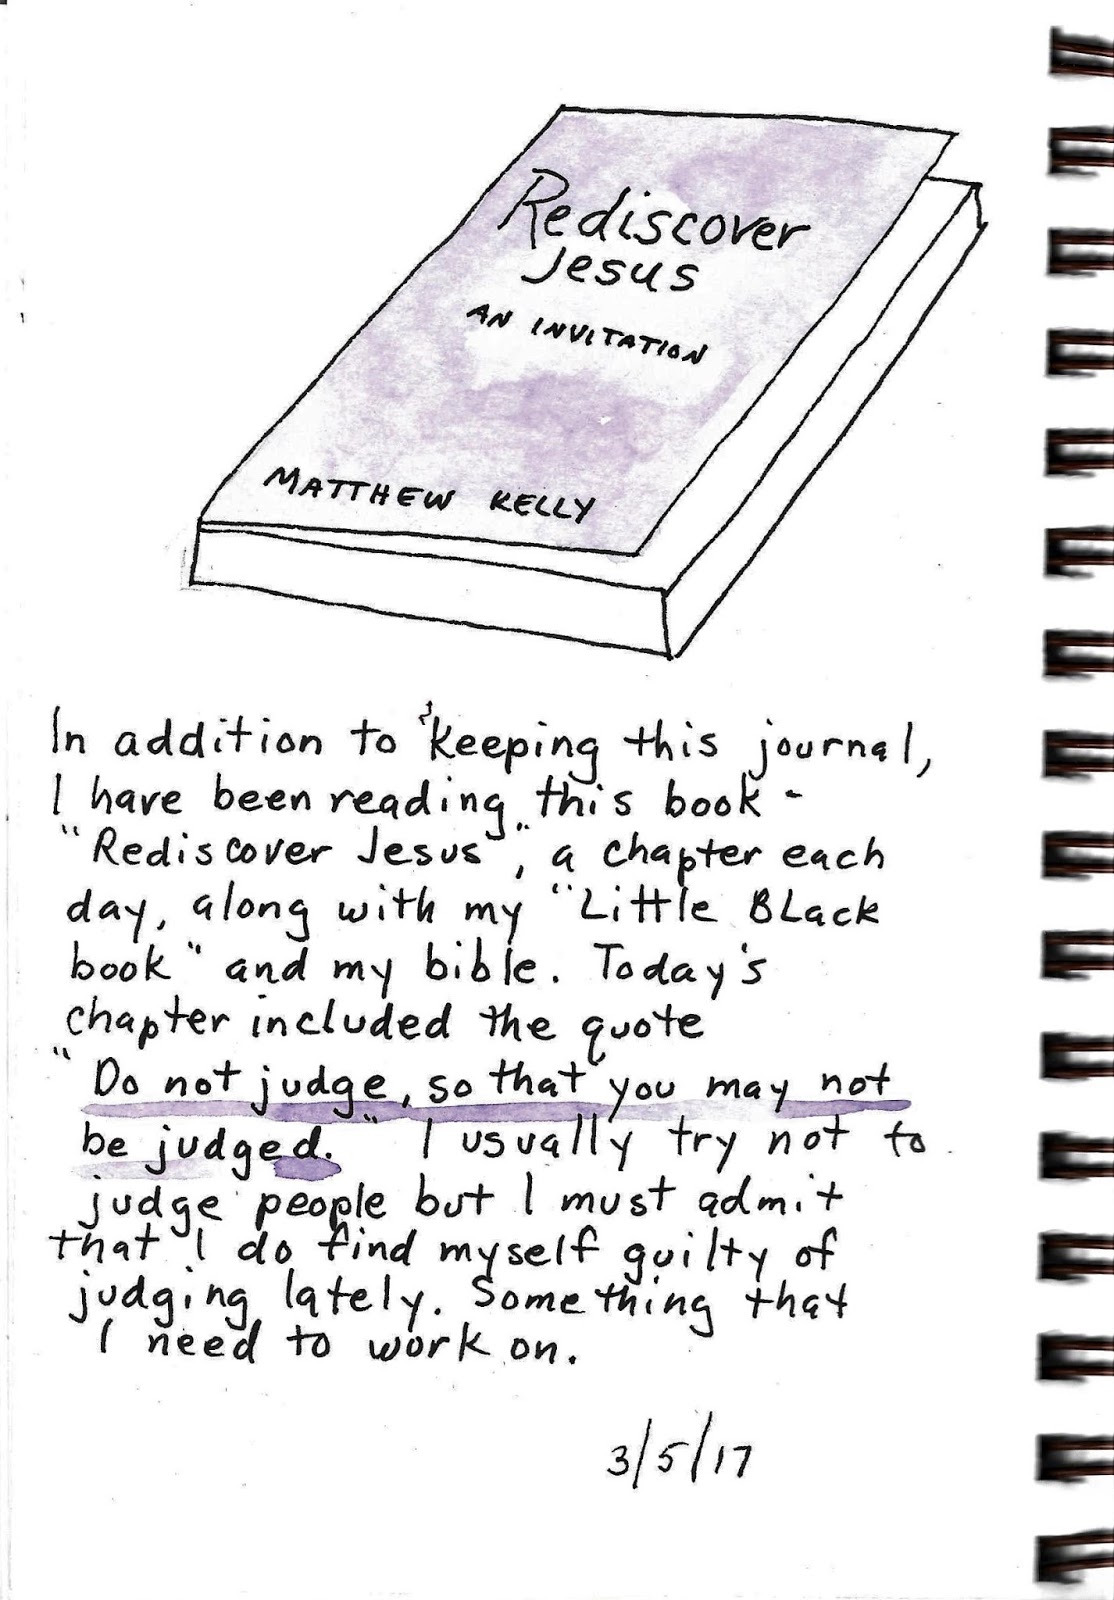 Rediscover
Jesus
AN INVITATION
MATTHEW KELLY
In addition to keeping this journal,
I have been reading this book -
"Rediscover Jesus", a chapter each
day, along with my "Little BLack
book" and my bible. Today's
chapter included the quote
"Do not judge, so that you may not
be judged." I usually try not to
judge people but I must admit
that I do find myself guilty of
judging lately. Something that
I need to work on.
3/5/17